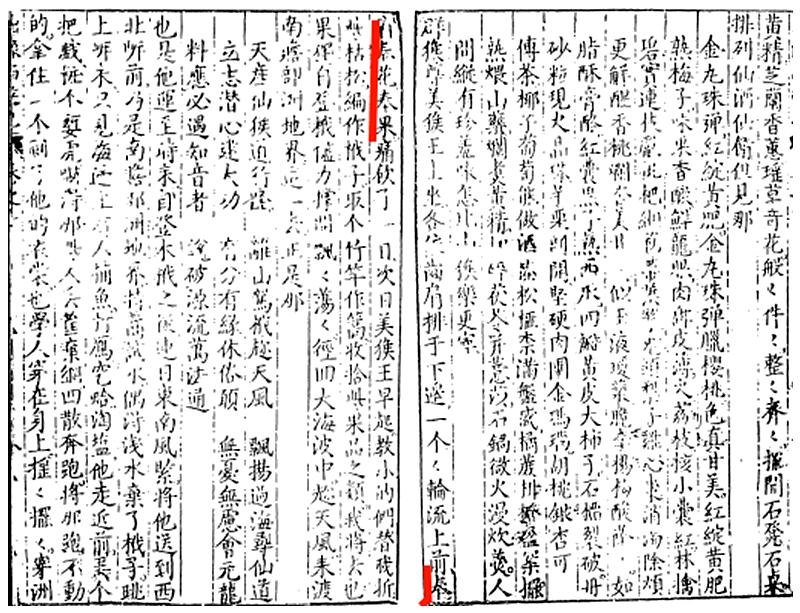 黃精芝蘭香蕙瑤草奇花般々件々整々齊々擺開石凳石桌
排列仙酒仙餚但見那
金丸珠彈紅綻黃肥金丸珠彈臘櫻桃色真甘美紅綻黃肥
熟梅子味果香酸鮮龍眼肉甜皮薄火荔枝核小囊紅林檎
碧實連枝獻枇杷緗苞帶葉擎兔頭梨子雞心棗消渴除煩
更解酲香桃爛杏美甘 似玉液瓊漿脆李楊梅酸蔭 如
脂酥膏酪紅囊黑子熟西瓜四瓣黃皮大柿子石榴裂破丹
砂粒現火晶珠芋栗剖開堅硬肉團金瑪瑙胡桃銀杏可
傳茶椰子葡萄能做酒榛松榧柰滿盤盛橘蔗柑橙盈案擺
熟煨山藥爛煮黃精搗碎茯苓并薏苡石鍋微火漫炊羹人
間縱有珍羞味怎比山猴樂更寧
群猴尊美猴王上坐各依齒肩排于下邊一个々輪流上前奉
酒奉花奉果痛飲了一日次日美猴王早起教小的們替我折
些枯松編作栰子取个竹竿作篙收拾些果品之類我將去也
果獨自登栰儘力撐開飄々蕩々徑向大海波中趁天風來渡
南贍部洲地界這一去正是那
天產仙猴道行隆 離山駕栰趁天風 飄揚過海尋仙道
立志潛心建大功 有分有緣休俗願 無憂無慮會元龍
料應必遇知音者 說破源流萬法通
也是他運至時來自登木栰之後連日東南風緊將他送到西
北岸前乃是南贍部洲地界持篙試水偶得淺水棄了栰子跳
上岸來只見海邊上有人捕魚打鴈穵蛤淘鹽他走近前弄个
把戲妝个虎嚇得那些人丟筐棄網四散奔跑將那跑不動
的拿住一个剝了他的衣裳也學人穿在身上搖々擺々穿洲